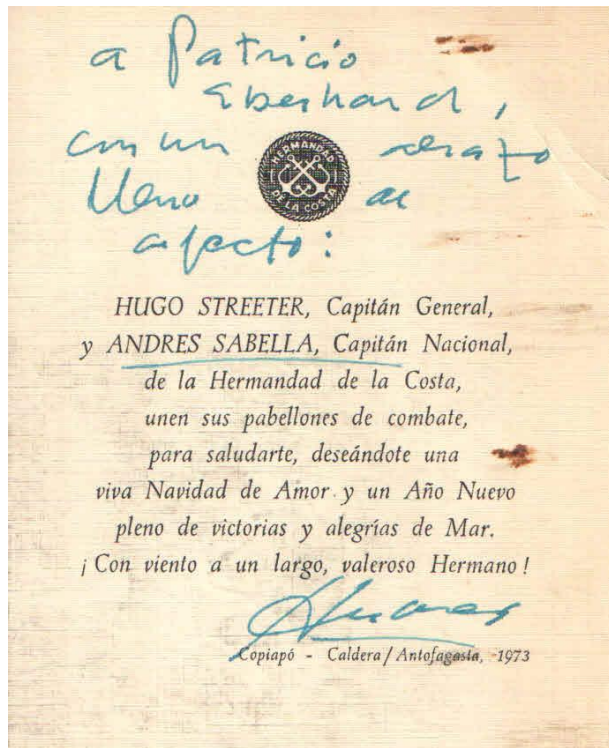 a Patricio
Eberhard,
con un abrazo
lleno de
afecto:
HERMANDAD
DE LA COSTA
HUGO STREETER, Capitán General,
y ANDRES SABELLA, Capitán Nacional,
de la Hermandad de la Costa,
unen sus pabellones de combate,
para saludarte, deseándote una
viva Navidad de Amor y un Año Nuevo
pleno de victorias y alegrías de Mar.
¡Con viento a un largo, valeroso Hermano!
Andrés
Copiapó - Caldera/Antofagasta, 1973